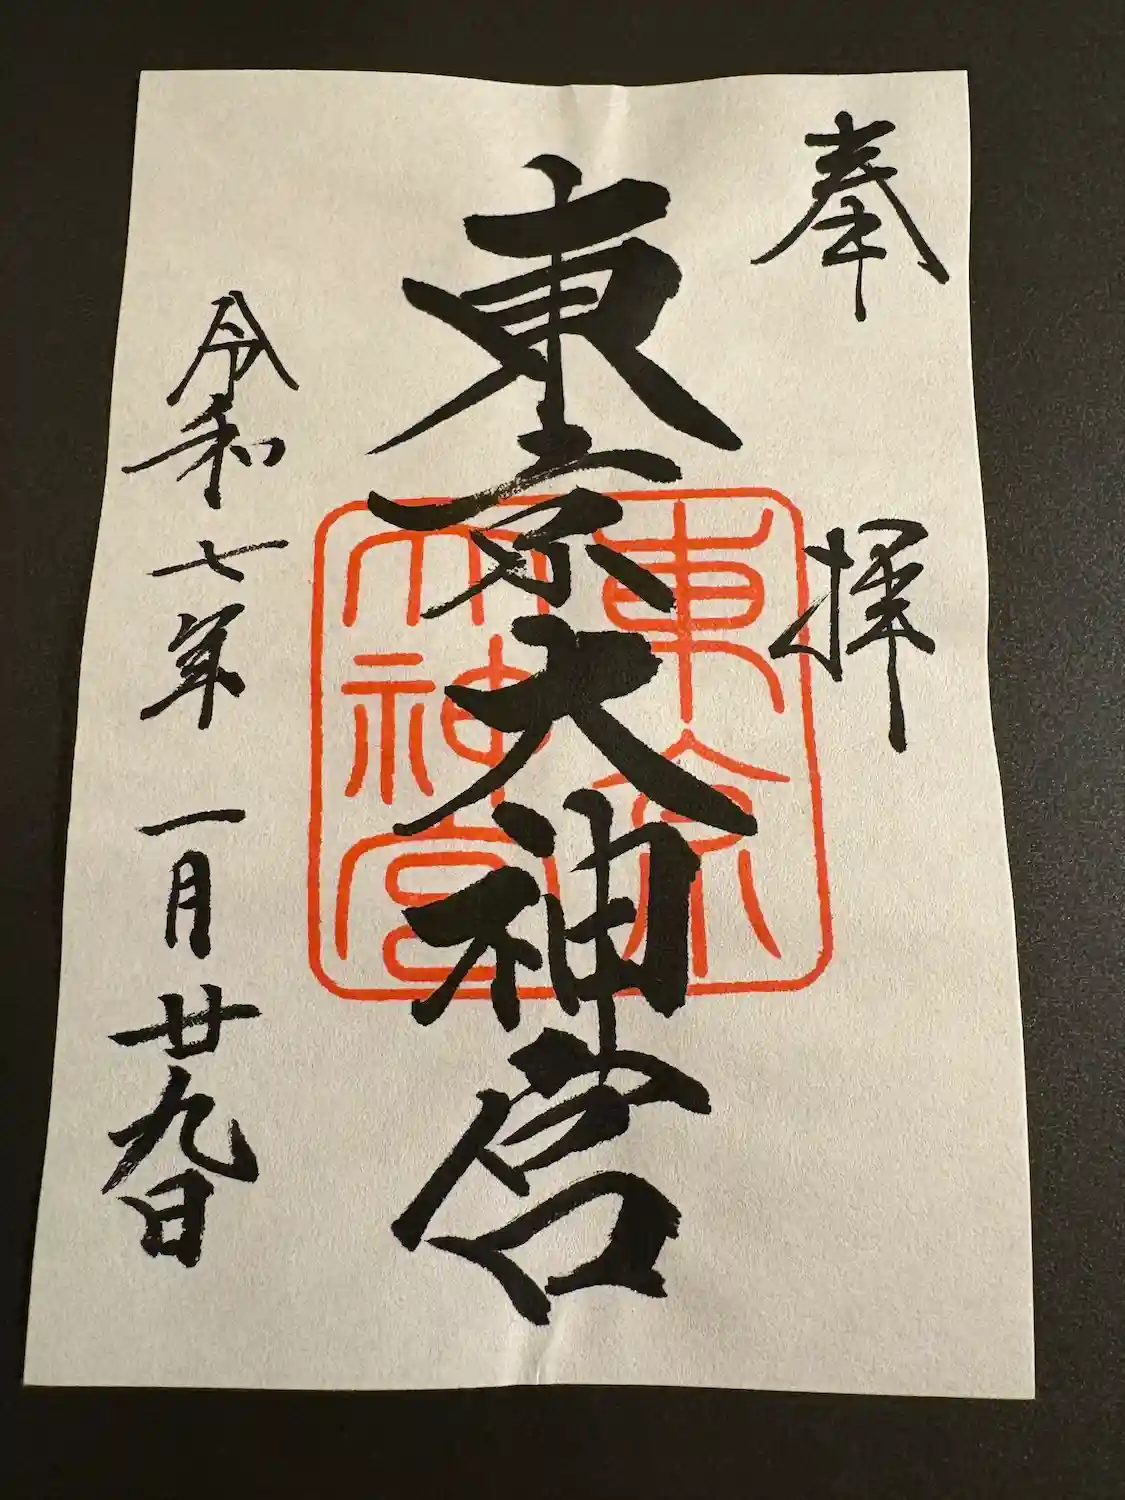 奉拝
東京大神宮
東京
大神宮
令和七年一月廿九日